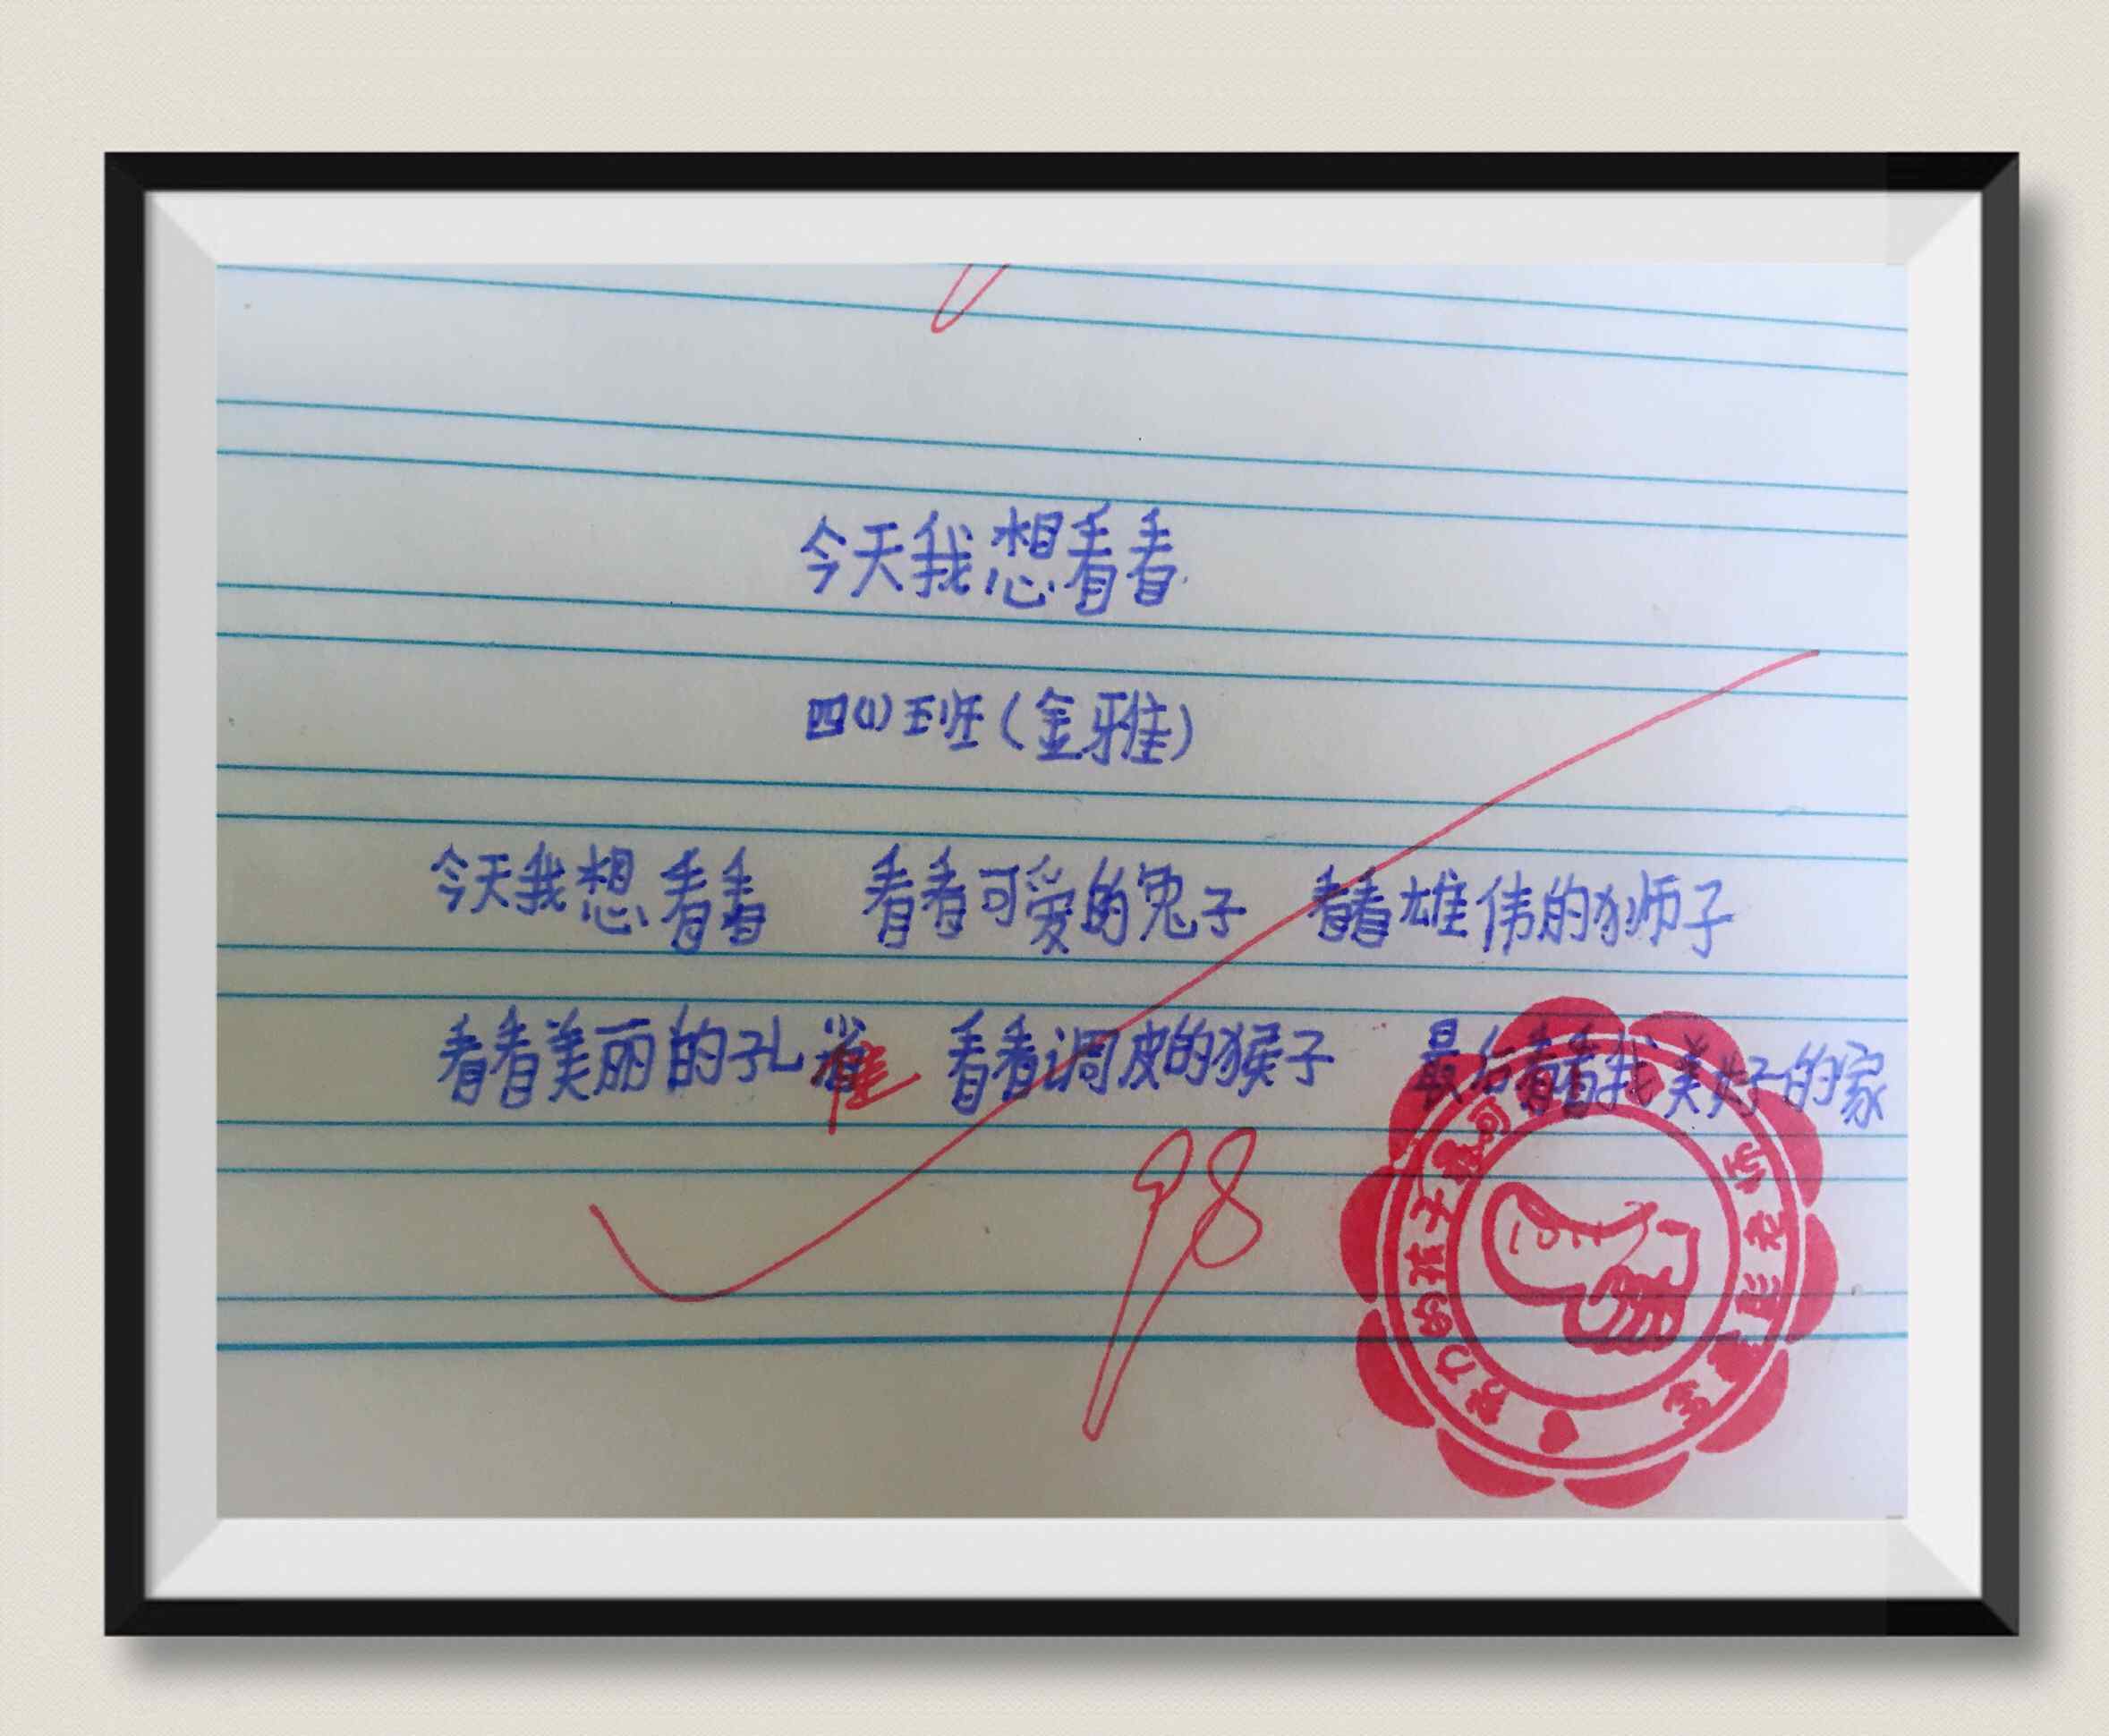 今天我想看看
四(1)班(金雅)
今天我想看看 看看可爱的兔子 看看雄伟的狮子
看看美丽的孔雀 看看调皮的猴子 最后看看我美好的家
98